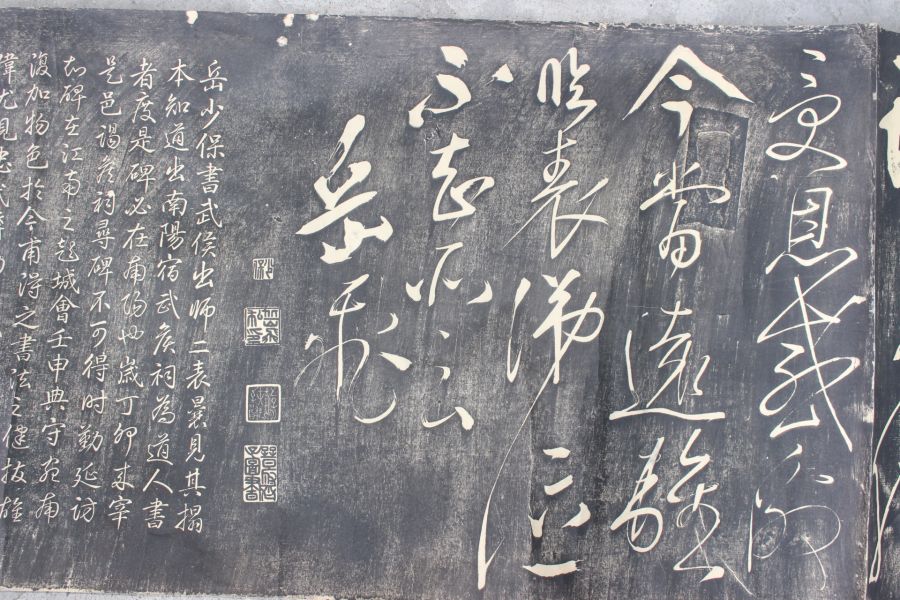 受恩感激
今當遠離
臨表涕泣
不知所云
岳飛
岳少保書武侯出師二表曩見其搨
本知道出南陽宿武侯祠為道人書
者度是碑必在南陽也歲丁卯来宰
是邑謁矦祠尋碑不可得時勤延訪
知碑在江南之彭城會壬申典守宛南
復加物色於今甫得之書法之健拔雄
偉尤見忠武